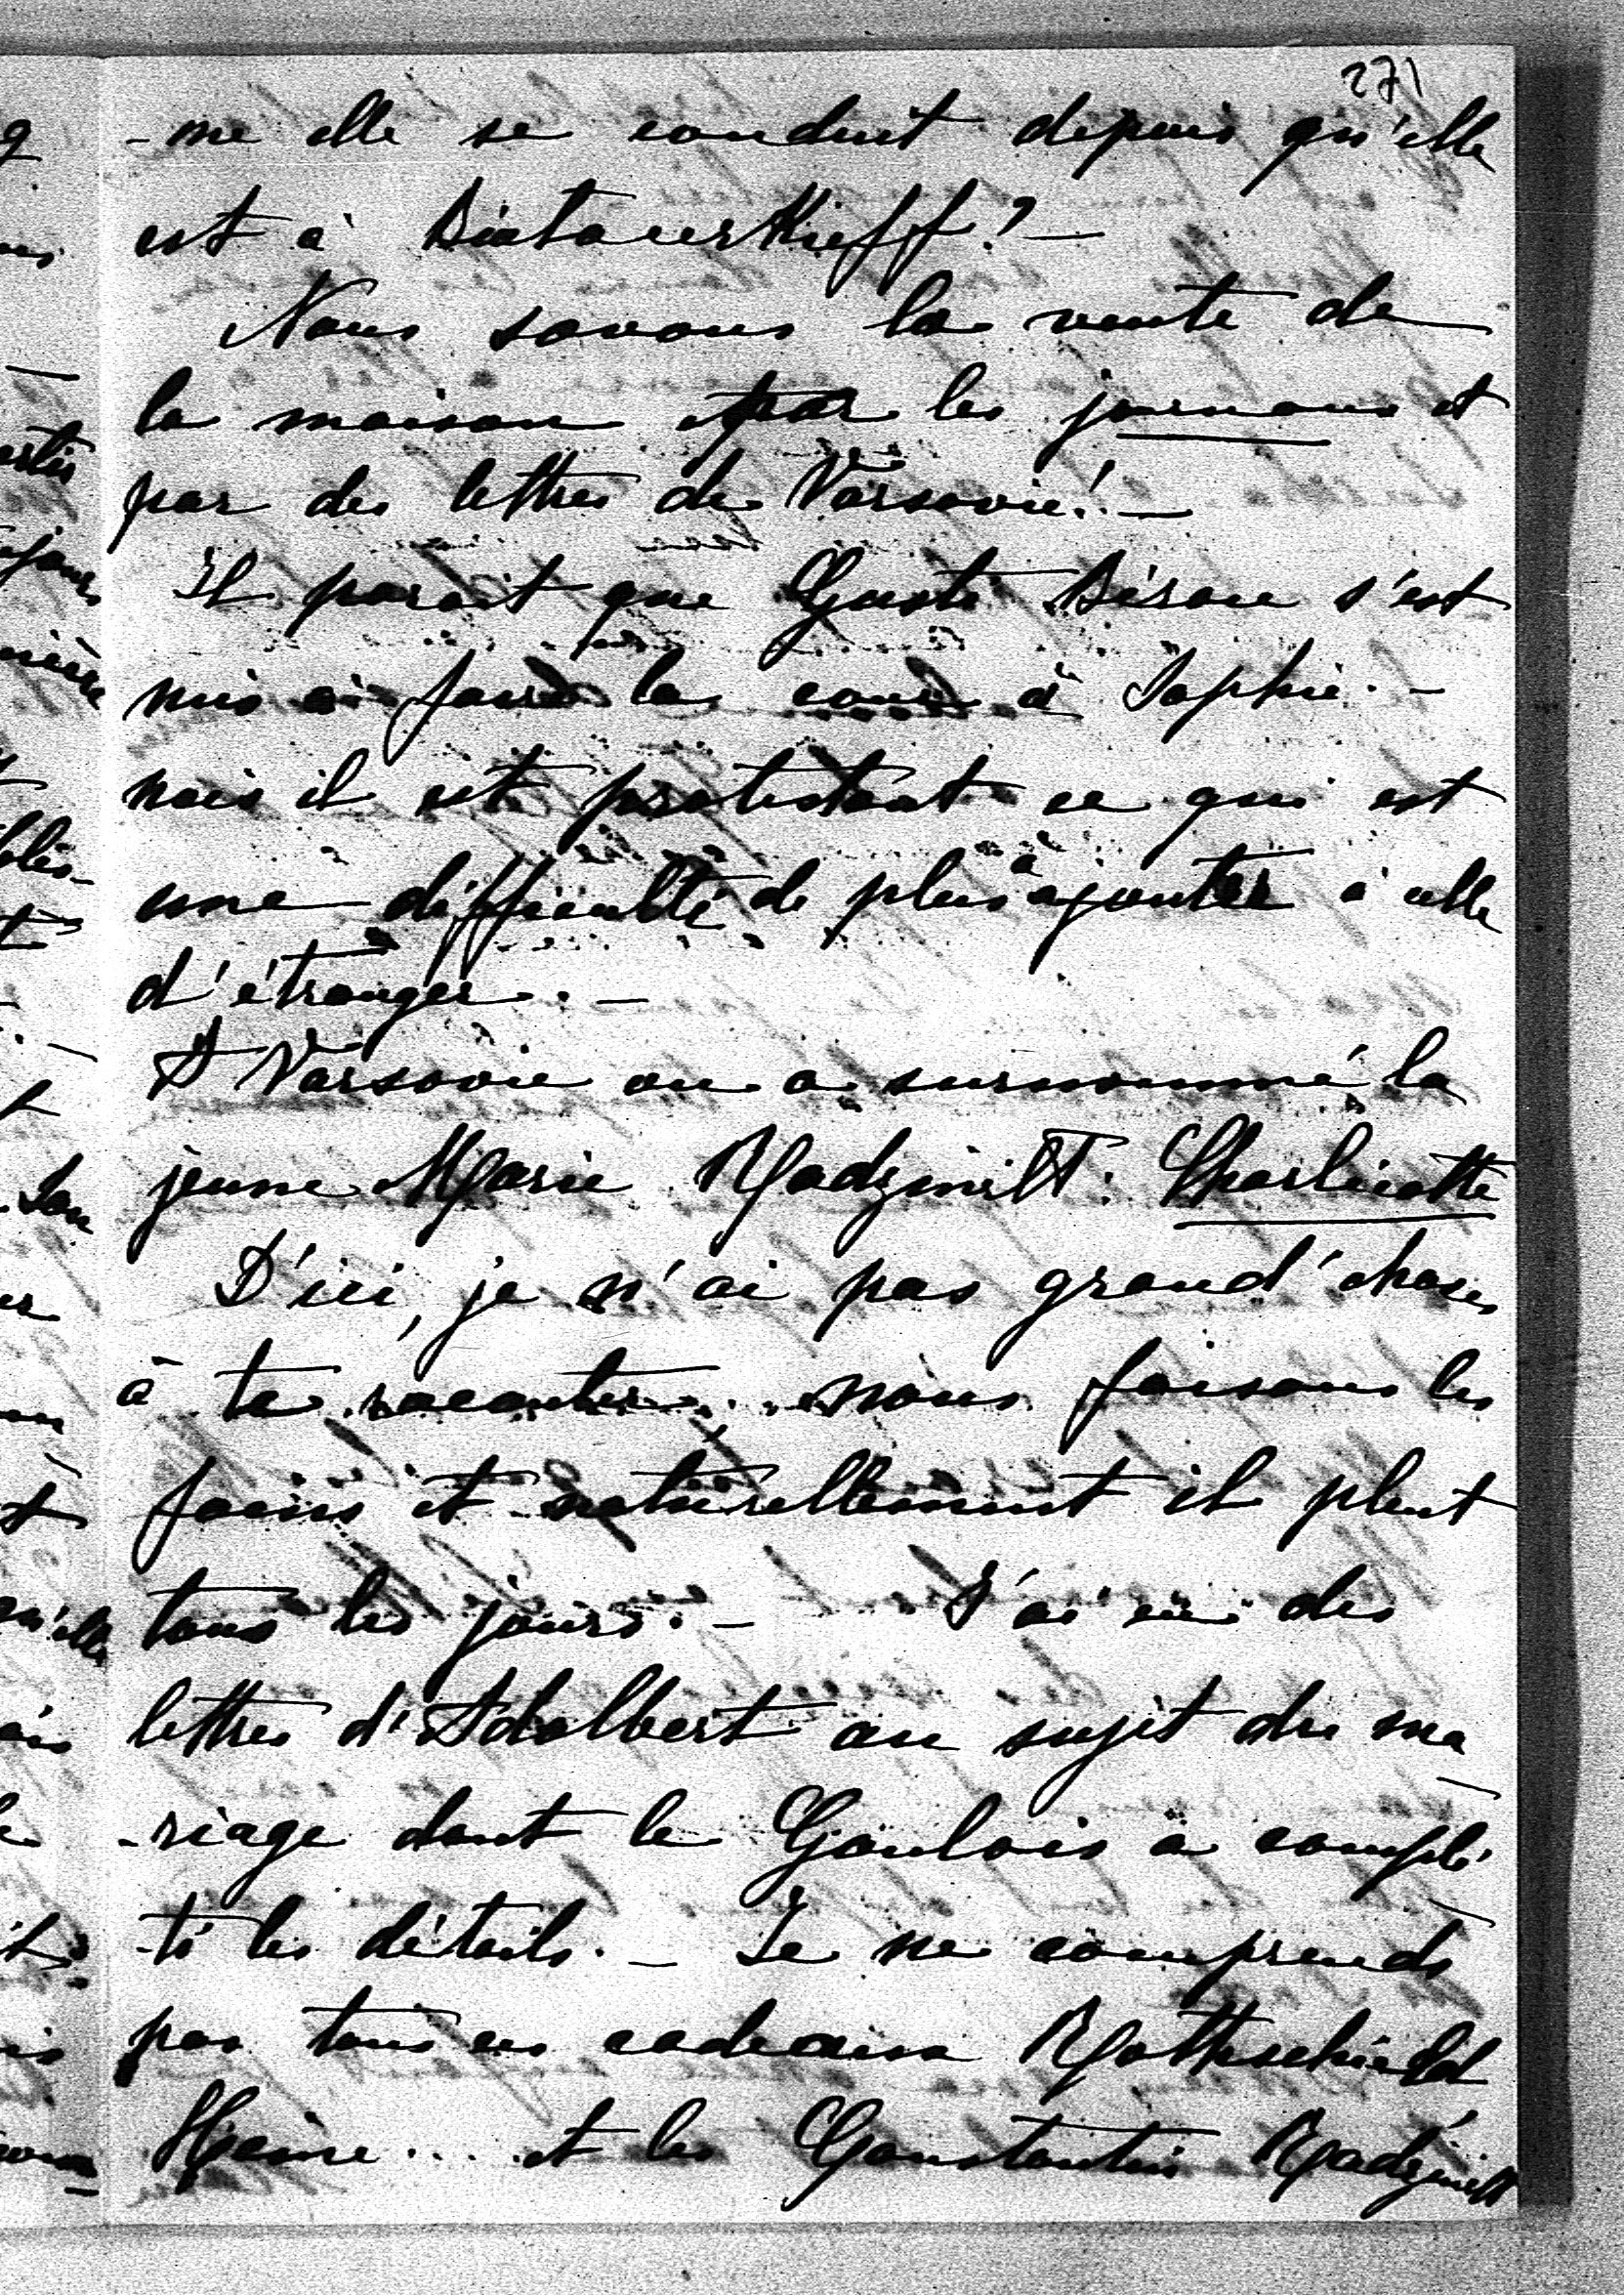 271
-me elle se conduit depuis qu'elle
est à BiatacerKieff? —
Nous savons la vente de
la maison par les journaux et
par des lettres de Varsovie! —
Il parait que Gusta Bérou s'est
mis à faire la cour à Sophie. —
mais il est protestant ce qui est
une difficulté de plus à ajouter à celle
d'étranger. —
A Varsovie on a surnommé la
jeune Marie Radziwill: Charlicotte
D'ici, je n'ai pas grand'chose
à te raconter... nous faisons les
foins et naturellement il pleut
tous les jours. — J'ai eu des
lettres d'Adalbert au sujet du ma
-riage dont le Gaulois a complé
-té les détails. — Je ne comprends
pas tous ces cadeaux Rothschield
Heine.... et les Constantin Radziwill